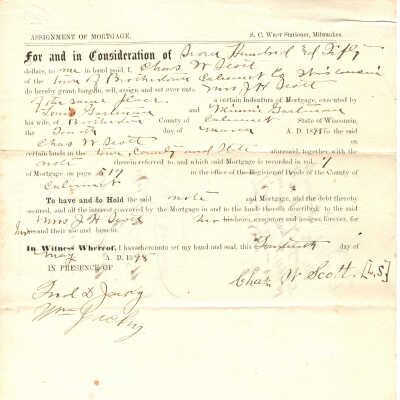 ASSIGNMENT OF MORTGAGE. S. C. West Stationer, Milwaukee.
For and in Consideration of Seven Hundred and Fifty
dollars, to me in hand paid, I, Chas W Scott
of the town of Brothertown Calumet Co Wisconsin
do hereby grant, bargain, sell, assign and set over unto Mrs J H Scott
of the same place a certain Indenture of Mortgage, executed by
and Minnie
his wife, of Brothertown County of Calumet State of Wisconsin,
the day of A. D. 18 to
Chas W Scott on
certain lands in the town, County and State aforesaid, together with the
note therein referred to and which said Mortgage is recorded in vol. 7
of Mortgages on page 517 in the office of the Register of Deeds of the County of
Calumet
To have and to Hold the said note and Mortgage, and the debt thereby
secured, and all the interest conveyed by the Mortgage in and to the lands therein described to the said
Mrs J H Scott her his heirs, executors and assigns, forever, for
her and their use and benefit.
In Witness Whereof, I have hereunto set my hand and seal, this day of
May A. D. 1898
IN PRESENCE OF
Chas W Scott. [L.S]
Fred D
Wm